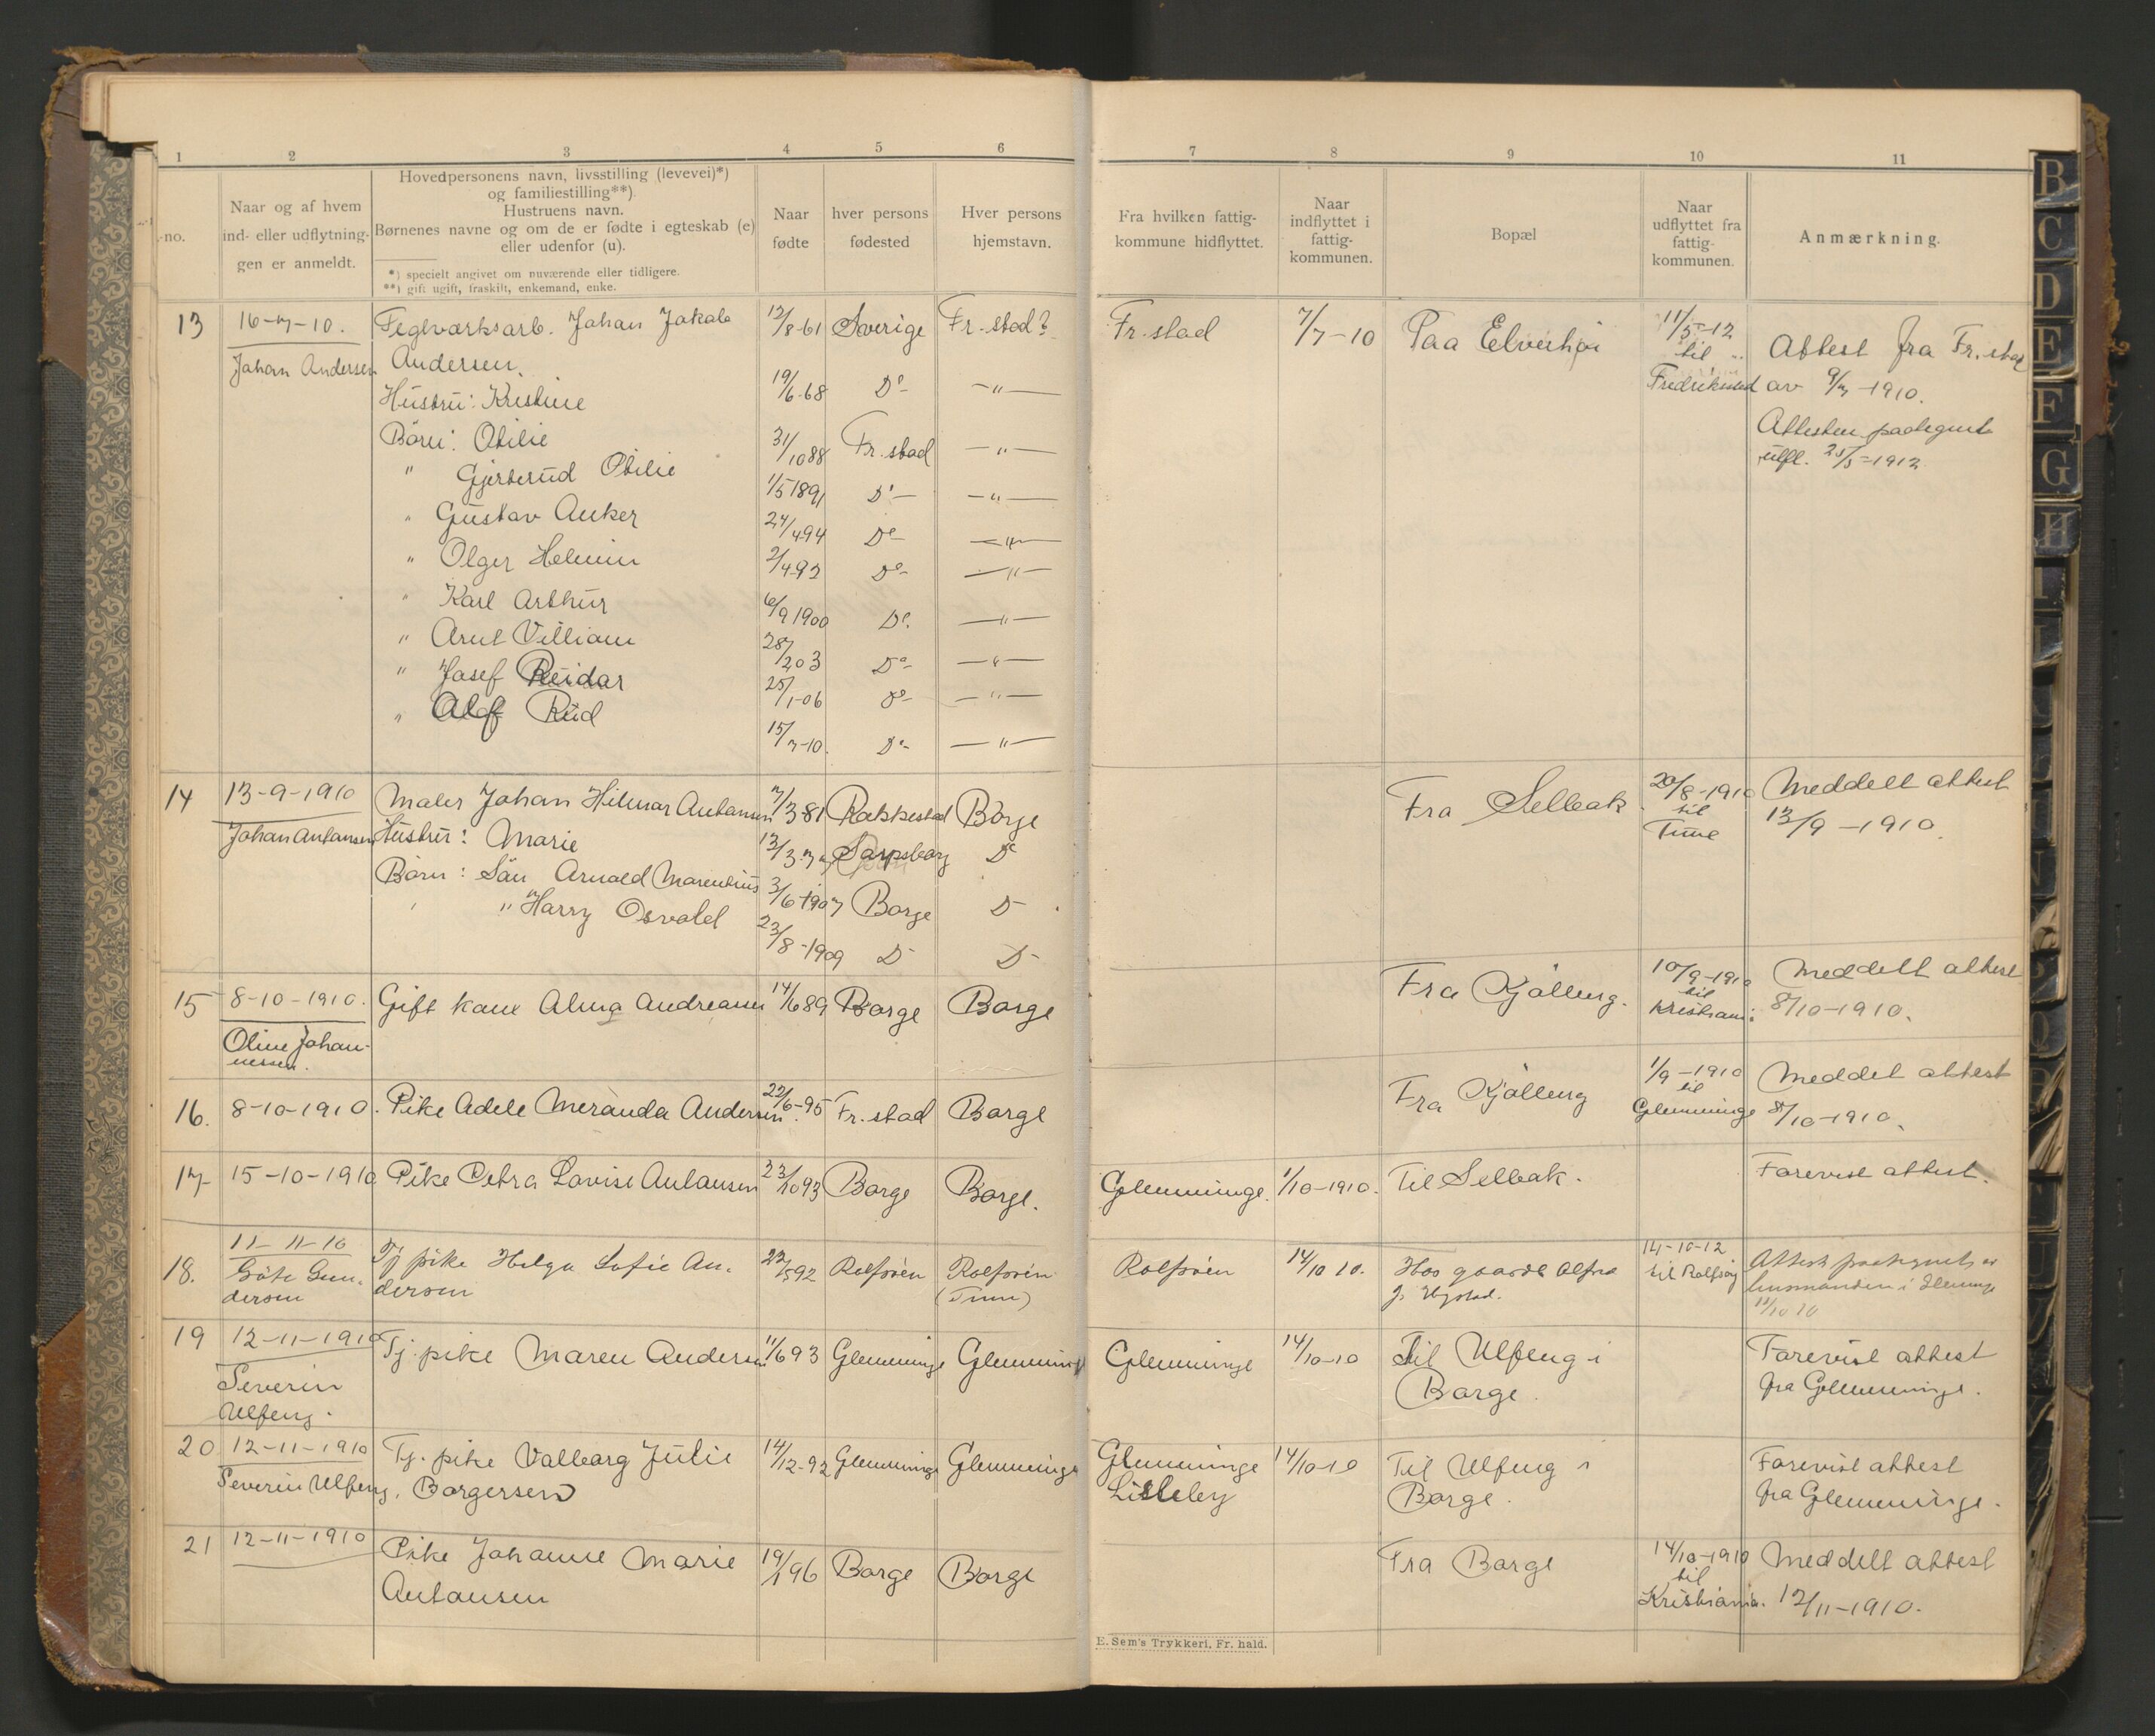 1 2 3 4 5 6 7 8 9 10 11
no.
Naar og af hvem
ind- eller udflytnin-
gen er anmeldt.
Hovedpersonens navn, livsstilling (levevei)*)
og familiestilling**)
Hustruens navn.
Børnenes navne og om de er fødte i egteskab (e)
eller udenfor (u).
*) specielt angivet om nuværende eller tidligere.
**) gift ugift, fraskilt, enkemand, enke.
Naar
fødte
hver persons
fødested
Hver persons
hjemstavn.
Fra hvilken fattig-
kommune hidflyttet.
Naar
indflyttet i
fattig-
kommunen.
Bopæl
Naar
udflyttet fra
fattig-
kommunen.
Anmærkning.
13 16-7-10. Teglværksarb. Johan Jakob 12/8-61 Sverige Fr.stad? Fr.stad 7/7-10 Paa Elverhøi 11/5-12 Attest fra Fr.stad
Johan Andersen Andersen. til Fredrikstad av 9/7-1910.
Hustru: Kristine 19/6.68 Do -"-
Attesten paategnet
Börn: Otilie 31/10 88 Fr.stad -"- utfl. 25/5-1912
" Gjerterud Otilie 1/5 1891 Do- -"-
" Gustav Anker 24/4 94 Do- -"-
" Olger Helmin 2/4 92 Do- -"-
" Karl Arthur 6/9 1900 Do. -"-
" Arnt Villiam 28/2 03 Do- -"-
" Josef Reidar 25/1-06 Do- -"-
" Olaf Rud 15/7-10. Do- -"-
14 13-9-1910 Maler Johan Hilmar Antonsen 7/3 81 Rakkestad Borge Fra Selbak. 20/8-1910 Meddelt attest
Johan Antonsen Hustru: Marie Sarpsborg Do til Tune 13/9-1910.
Börn: Sön Arnold Marentius 3/6-1907 Borge D-
" Harry Osvald 23/8-1909 D- D-
15 8-10-1910. Gift kone Alma Andreasen 14/6 89 Borge Borge Fra Kjölberg. 10/9-1910 Meddelt attest
Oline Johan- til
nessen. Kristiani. 8/10-1910.
16. 8-10-1910. Pike Adele Meranda Andersen 22/6-95 Fr.stad Borge Fra Kjölberg 1/9-1910 Meddelt attest
til
Glemminge 8/10-1910.
17 15-10-1910 Pike Petra Lovise Antonsen 23/10 93 Borge Borge. Glemminge. 1/10-1910. Til Selbak. Forevist attest.
18. 11-11-10 Tj pike Helga Sofie An- 22/5 92 Rolfsöen Rolfsöen Rolfsöen 14/10 10. Hos gaardb 14-10-12 Attest paategnet av
Gun- dersen (Tune) til Rolfsøy lensmanden i Glemminge
dersen 11/10 10
19 12-11-1910 Tj. pike Maren Andersen 11/6 93 Glemminge Glemminge Glemminge 14/10-10 Til Ulfeng i Forevist attest
Severin Borge. fra Glemminge.
Ulfeng.
20 12-11-1910 Tj. pike Valborg Julie 14/12-92 Glemminge Glemminge Glemminge 14/10-10 Til Ulfeng i Forevist attest
Severin Ulfeng. Borgersen Lisleby Borge. fra Glemminge.
21 12-11-1910 Pike Johanne Marie 19/1 96 Borge Borge Fra Borge 14/10-1910 Meddelt attest
Antonsen til
Kristiania. 12/11-1910.
E. Sem's Trykkeri, Fr. hald.
B
C
D
E
F
G
H